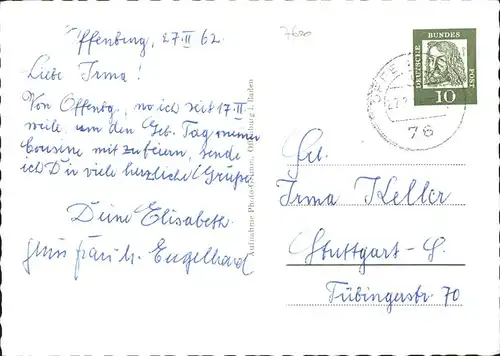 Offenburg, 27.II 62.
Liebe Irma!
Von Offenbg, wo ich seit 17.II
weile, um den Geb. Tag meiner
Cousine mit zufeiern, sende
ich Dir viele herzliche Grüße.
Deine Elisabeth.
Engelhard
Aufnahme Photo-Grimm, Offenburg i. Baden
7600
DEUTSCHE BUNDES POST
10
OFFE
27.2
76
Irma Keller
Stuttgart-S.
Tübingerstr. 70